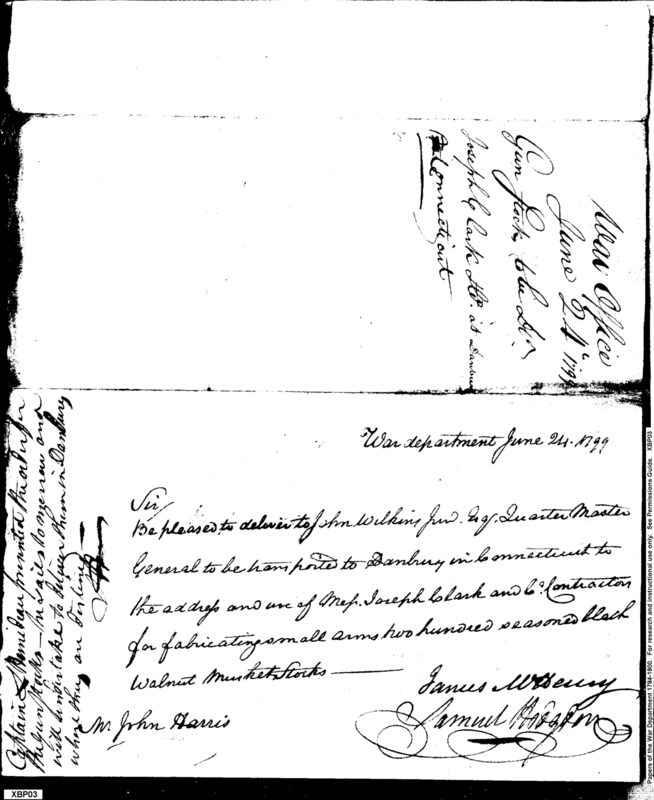 War Office
June 24th 1799
Gun Stocks to be Dld
Joseph Clark &Co. at Danbury
Connecticut
War department June 24. 1799
Sir,
Be pleased to deliver to John Wilkins Junr. Esqr. Quarter Master
General to be transported to Danbury in Connecticut to
the address and use of Messs. Joseph Clark and Co. Contractors
for fabricating small arms two hundred seasoned black
Walnut Musket Stocks
James McHenry
Samuel Hodgdon
Mr John Harris
Captain presented the order for
the Gun Stocks — he sails tomorrow and
will undertake to deliver them in Danbury
where they are destined —
Papers of the War Department 1784-1800. For research and instructional use only. See Permissions Guide. XBP03
XBP03